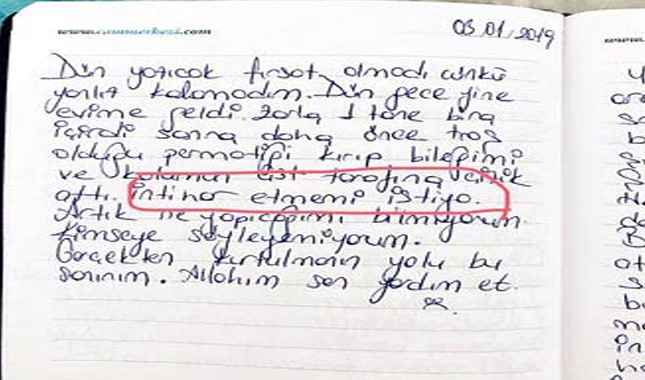 03.01.2019
Dün yazıcak fırsat olmadı çünkü
yanlız kalamadım. Dün gece yine
evime geldi zorla 1 tane bira
içirdi sonra daha önce traş
olduğu permatiği kırıp bileğimi
ve kolumun üst tarafına çizik
attı. intihar etmemi istiyo.
Artık ne yapıcağımı bilmiyorum
kimseye söyleyemiyorum.
Gerçekten kurtulmanın yolu bu
sanırım. Allahım sen yardım et.